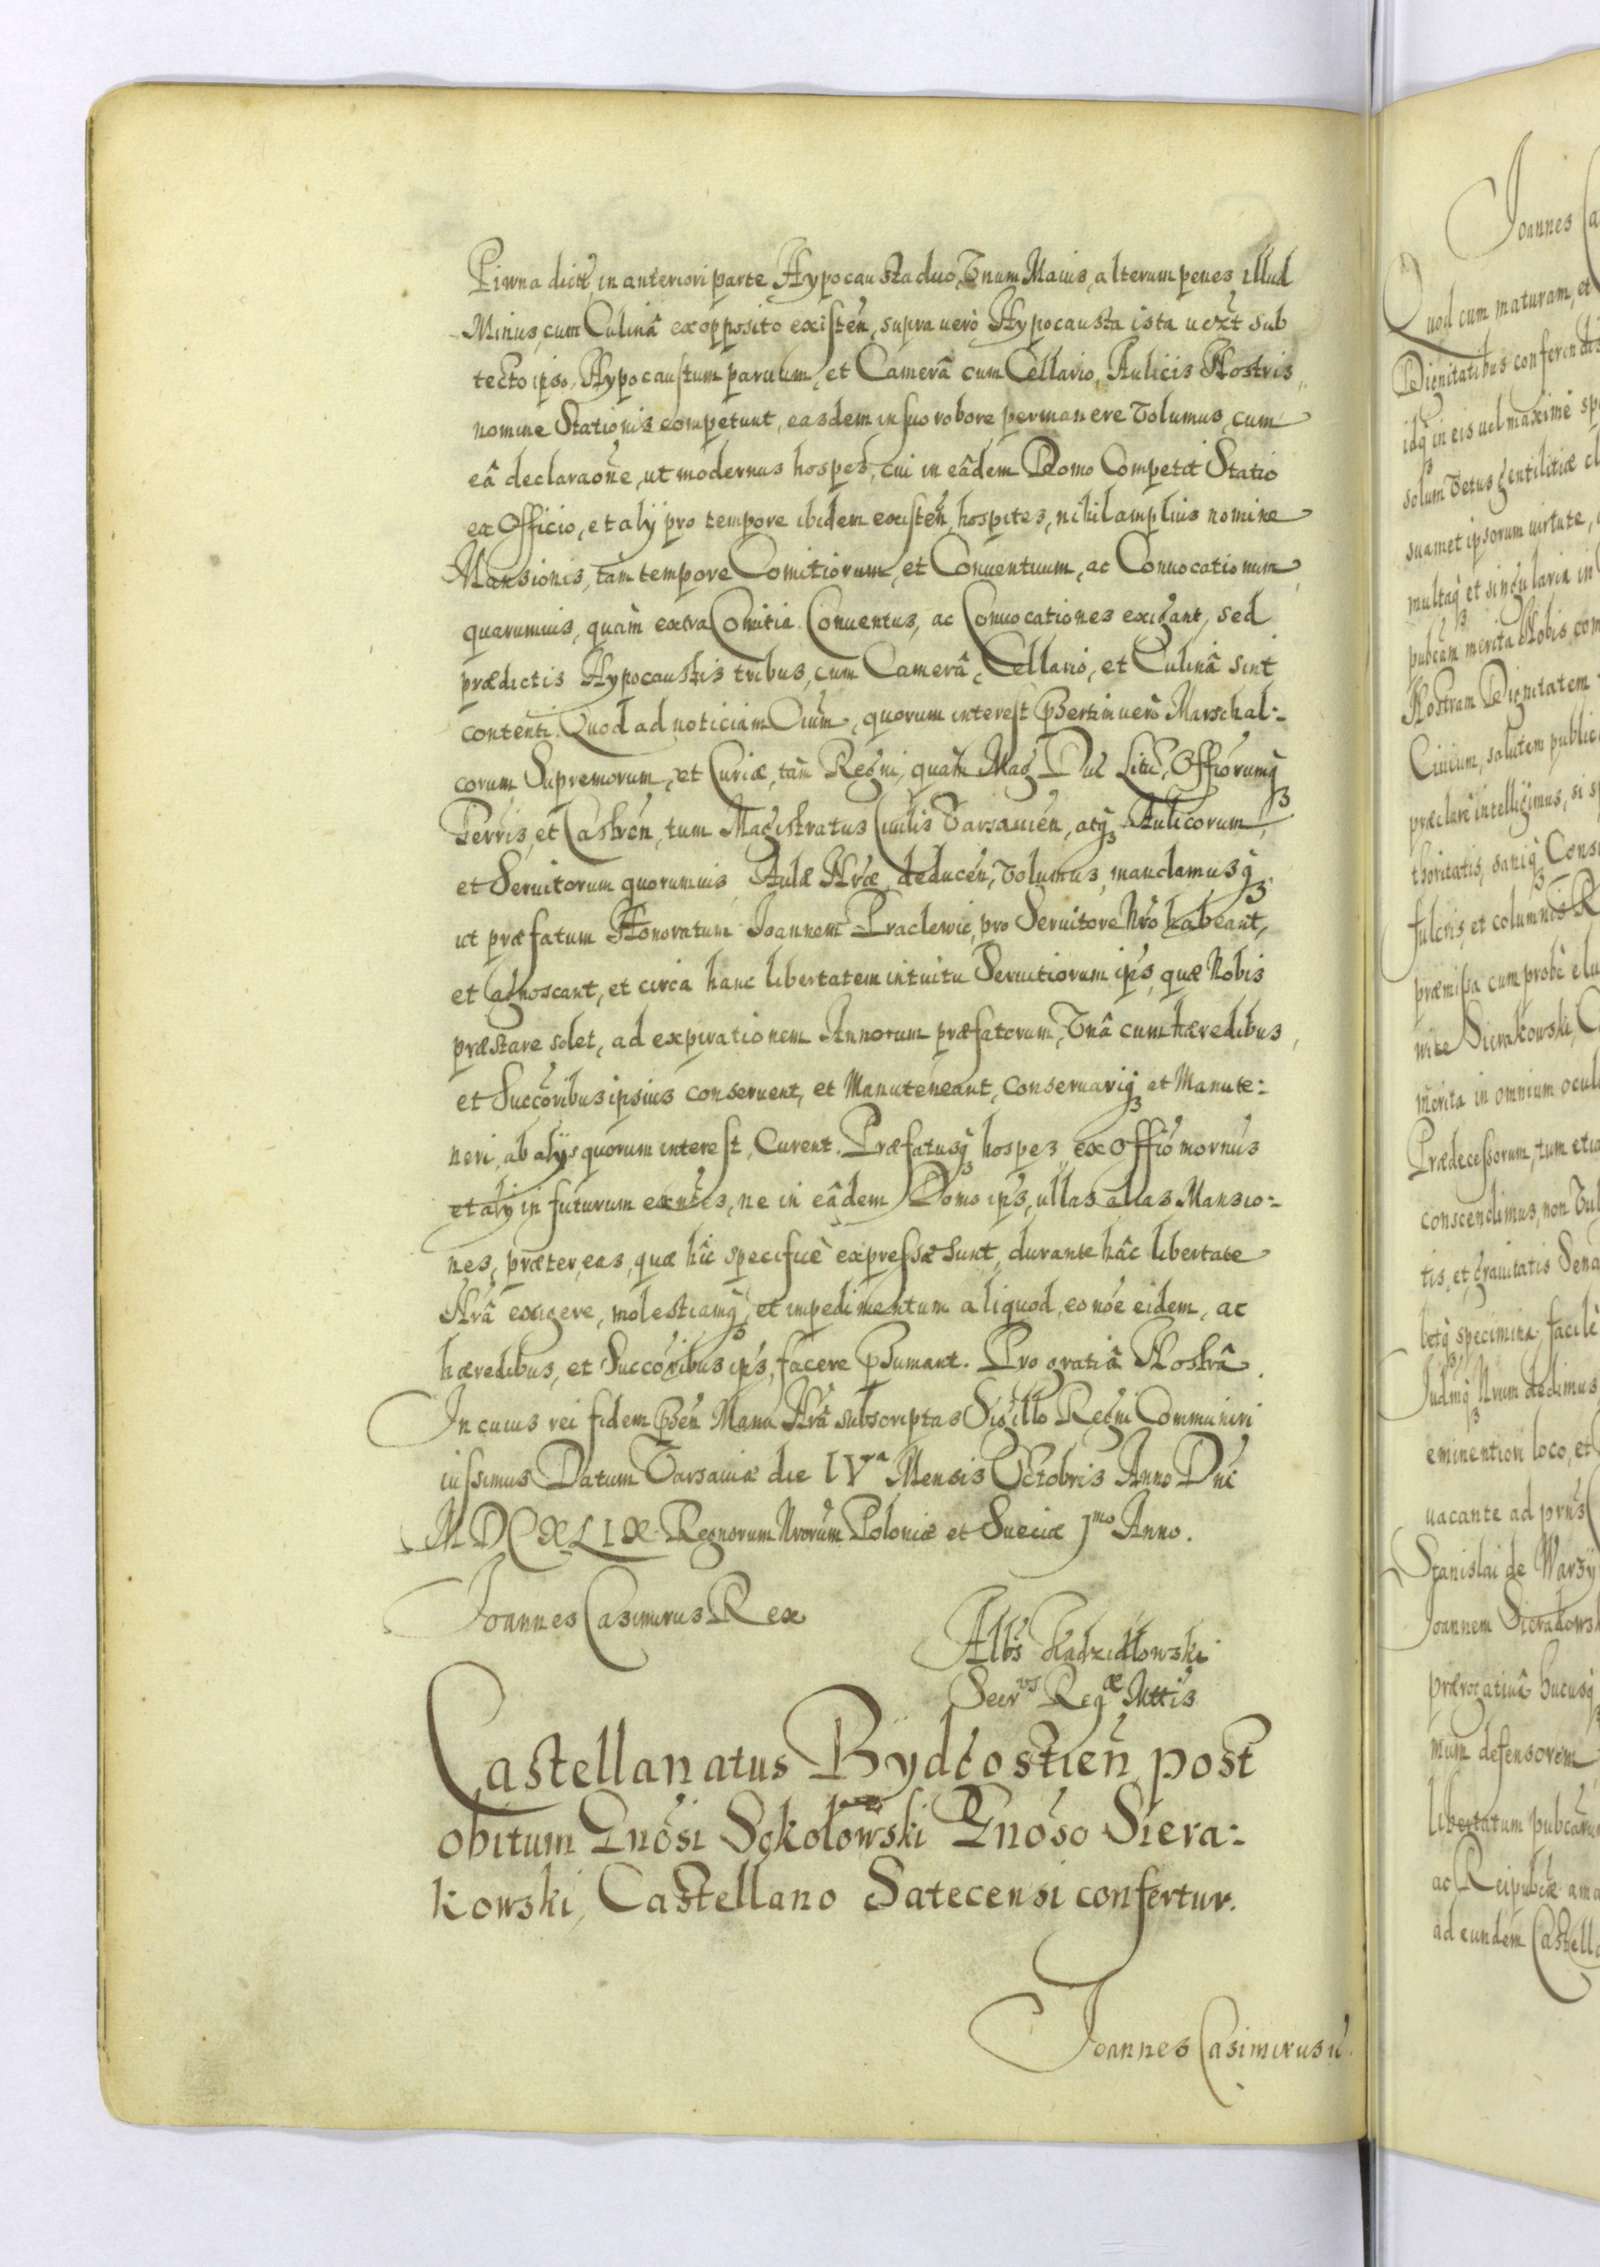 Piwna dictȩ in anteriori parte Hypocausta duo, Vnum Maius, alterum penes illud
Minus, cum Culinâ ex opposito existeñ, supra verò Hypocausta ista sub
tecto ipso, Hypocaustum paruum, et Camerâ cum Cellario, Aulicis Nostris
nomine Stationis competunt, easdem in suo robore permanere Volumus, cum
eâ declaraõne, ut modernus hospes, cui in eâdem Domo Competit Statio
ex Officio, et alÿ pro tempore ibidem existeñ, hospites, nihil amplius nomine
Mansionis, tam tempore Comitiorum, et Conuentuum, ac Conuocationum
quarumuis, quàm extra Comitia Conuentus, ac Conuocationes exigant, sed
prædictis Hypocaustis tribus, cum Camerâ, Cellario, et Culinâ sint
contenti. Quod ad noticiam Oium, quorum interest pŝertim uerò Marschal:
corum Supremorum, et Curiæ, tàm Regni, quàm Mag Duc Litũ, Offiorumq₃
Terris, et Castreñ, tum Magistratus Ciuilis Varsauieñ, atq₃ Aulicorum,
et Seruitorum quorumuis Aulæ Nr̃æ deduceñ, Volumus, mandamusq₃
ut præfatum Honoratum Joannem Praclewic, pro Seruitore Nr̃o habeant,
et agnoscant, et circa hanc libertatem intuitu Seruitiorum ipŝ, quæ Nobis
præstare solet, ad expirationem Annorum præfatorum, Vnâ cum hæredibus,
et Succõribus ipsius conseruent, et Manuteneant, conseruariq₃ et Manute:
neri, ab alÿs quorum interest, Curent. Præfatusq₃ hospes ex Offiõ mornus
et alÿ in futurum exñtes, ne in eâdem Domo ipŝ, ullas alias Mansio:
nes, præter, eas, quæ hîc specificè expressæ sunt, durante hâc libertate
Nr̃â exigere, molestiamq₃, et impedimentum aliquod, eo nõe eidem, ac
hæredibus, et Succõribus ipŝ, facere pŝumant. Pro gratiâ Nostrâ.
In cuius rei fidem pŝeñ Manu Nr̃â subscriptas Sigillo Regni Communiri
iussimus Datum Varsauiæ die IVª Mensis Octobris Anno Dñi
MDCXLIX Regnorum Nrorum Poloniæ et Sueciæ Jmo Anno.
Joannes Casimirus Rex
Albs Kadzidłowski
Secrus Regæ Mttis
Castellanatus Bÿdgostieñ post
obitum Gnõsi Sokołowski Gnõso Siera:
kowski, Castellano Satecensi confertur.
Joannes Casimirus
Joannes
Quod cum maturam, et
Dignitatibus conferendis
idq₃ in eis uel maximè
solum Vetus gentilitiæ
suamet ipsorum uirtute,
multaq₃ et singularia in
pubcam merita Nobis
Nostram Dignitatem
Ciuium, salutem
præclarè intelligimus, si
thoritatis, saniq₃
fulcris, et columnis
præmissa cum probè
Sierakowski,
merita in omnium
Prædecessorum, tum
conscendimus, non
tis, et grauitatis
specimina, facilè
Nrum dedimus
eminentiori loco, et
uacante ad prns
Stanislai de
Joannem
prærogatiuâ hucusq₃
defensorem
libertatum
ac Reipubcæ
ad eundem